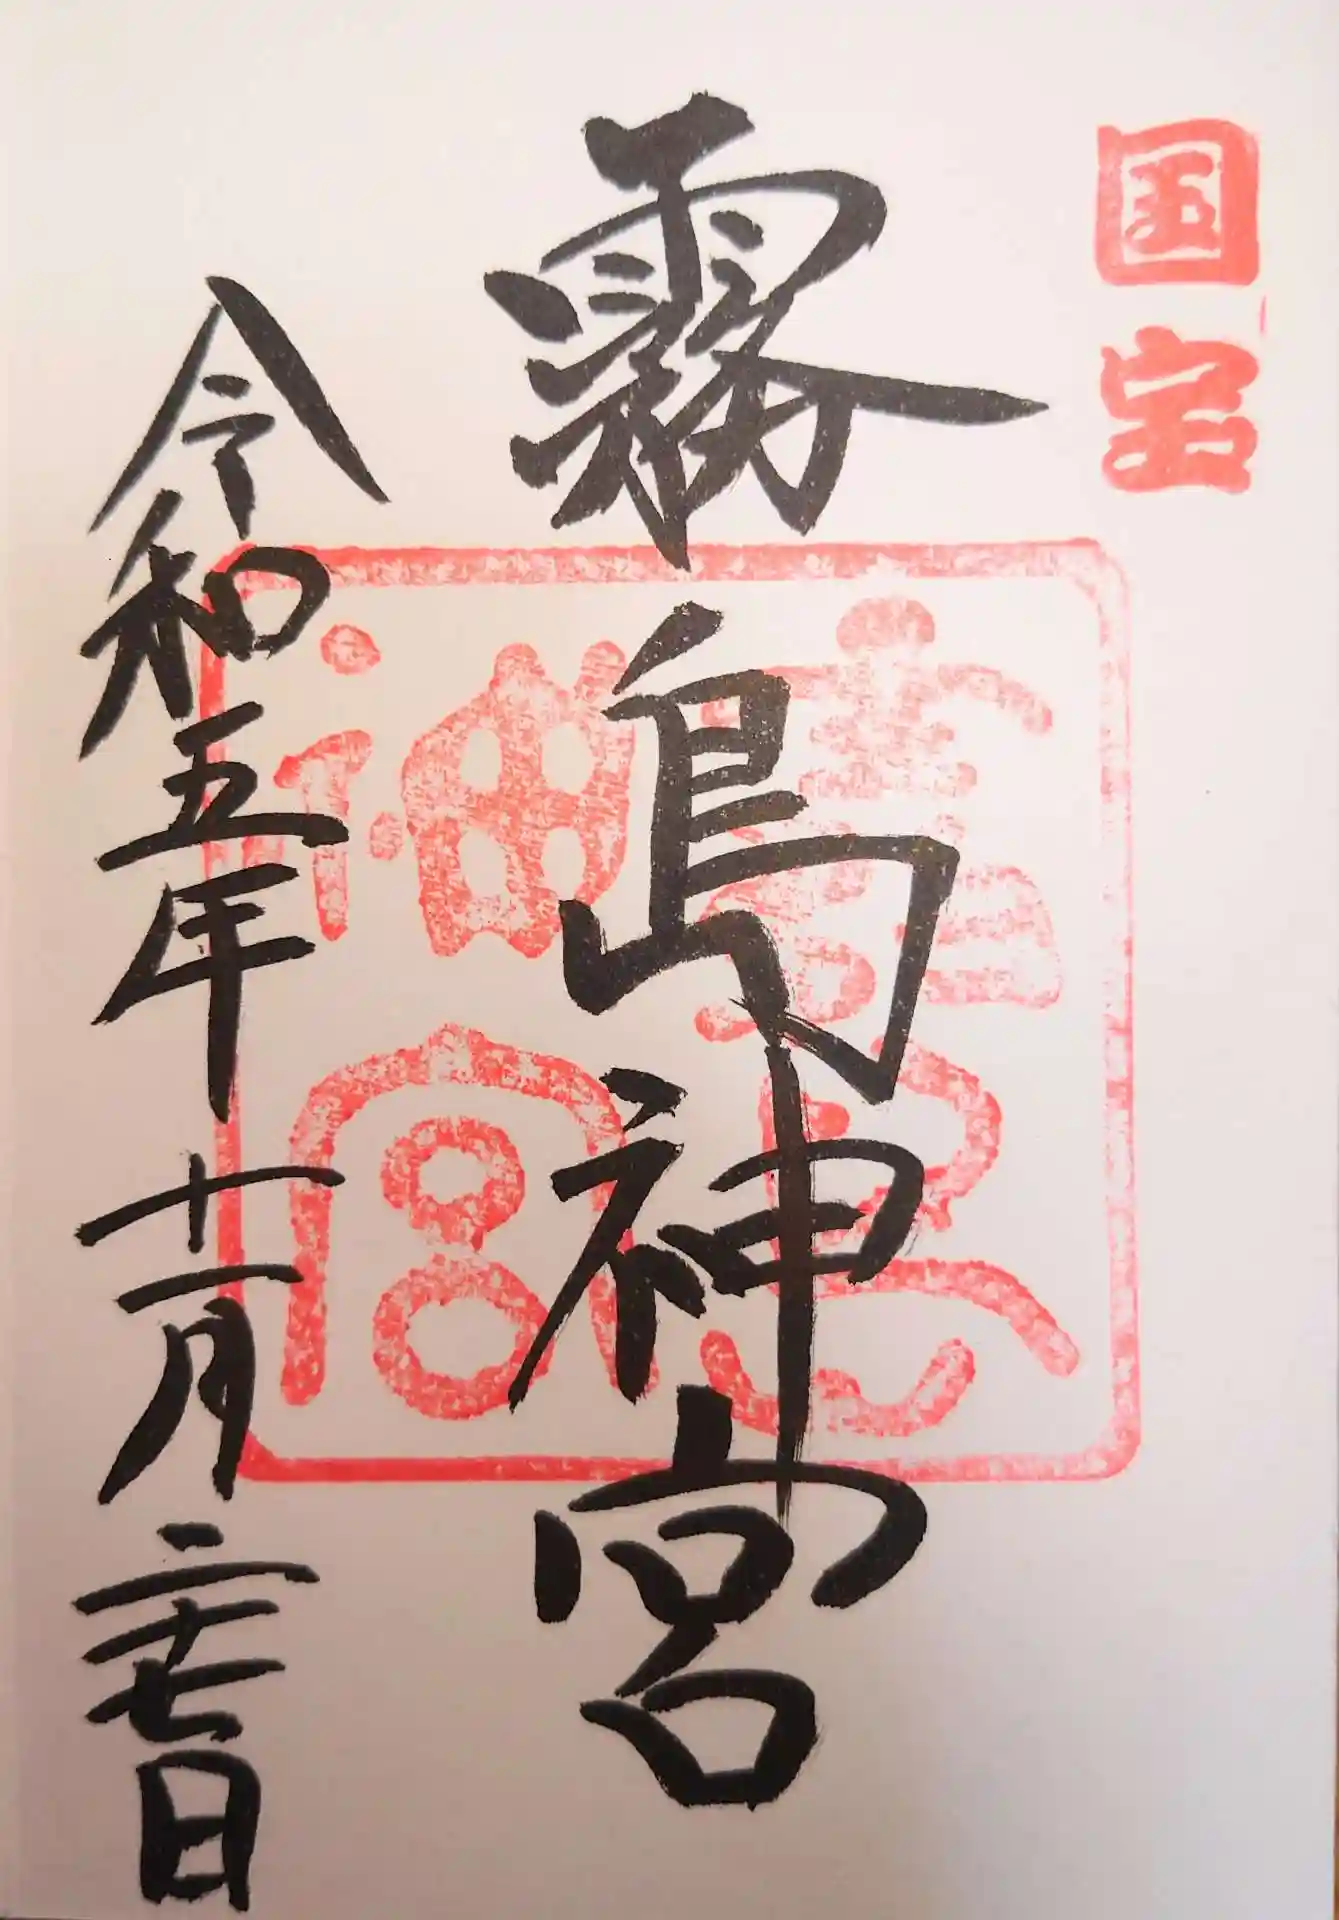 国宝
霧島神宮
霧島神宮
令和五年十一月二十七日